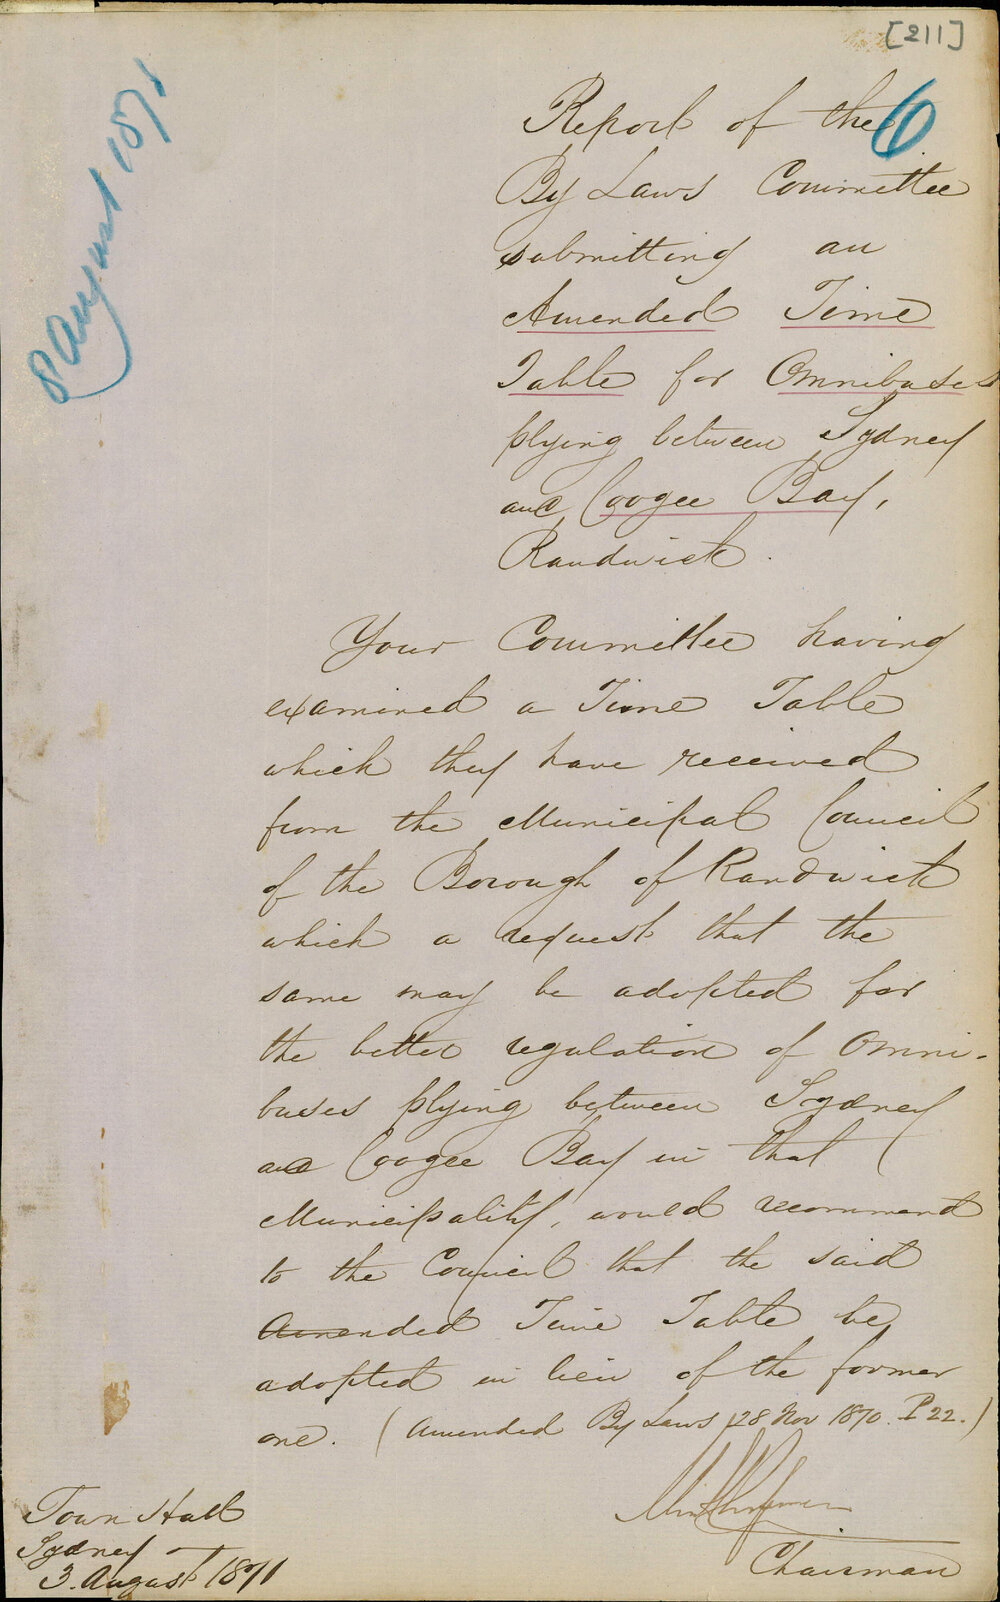 [211]
6
8 August 1871
Report of the
By Laws Committee
submitting an
Amended Time
Table for Omnibuses
plying between Sydney
and Coogee Bay,
Randwick.
Your Committee having
examined a Time Table
which they have received
from the Municipal Council
of the Borough of Randwick
which a request that the
same may be adopted for
the better regulation of Omni-
buses plying between Sydney
and Coogee Bay in that
Municipality, would recommend
to the Council that the said
Amended Time Table be
adopted in lieu of the former
one. (Amended By Laws 28 Nov 1870. P 22.)
Chairman
Town Hall
Sydney
3. August 1871